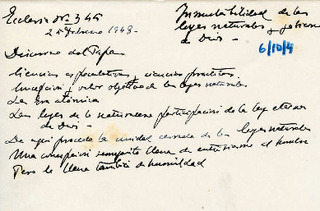 Ecclesia nº 345
25 Febrero 1948
Inmutabilidad de las
leyes naturales y gobierno
de Dios
6/10/4
Discurso del Papa
Ciencias especulativas y ciencias prácticas.
Concepción y valor objetivo de las leyes naturales.
La era atómica
Las leyes de la naturaleza participación de la ley eterna
de Dios
De aquí procede la unidad cerrada de las leyes naturales
Una concepción semejante llena de entusiasmo al hombre
Pero le llena también de humildad